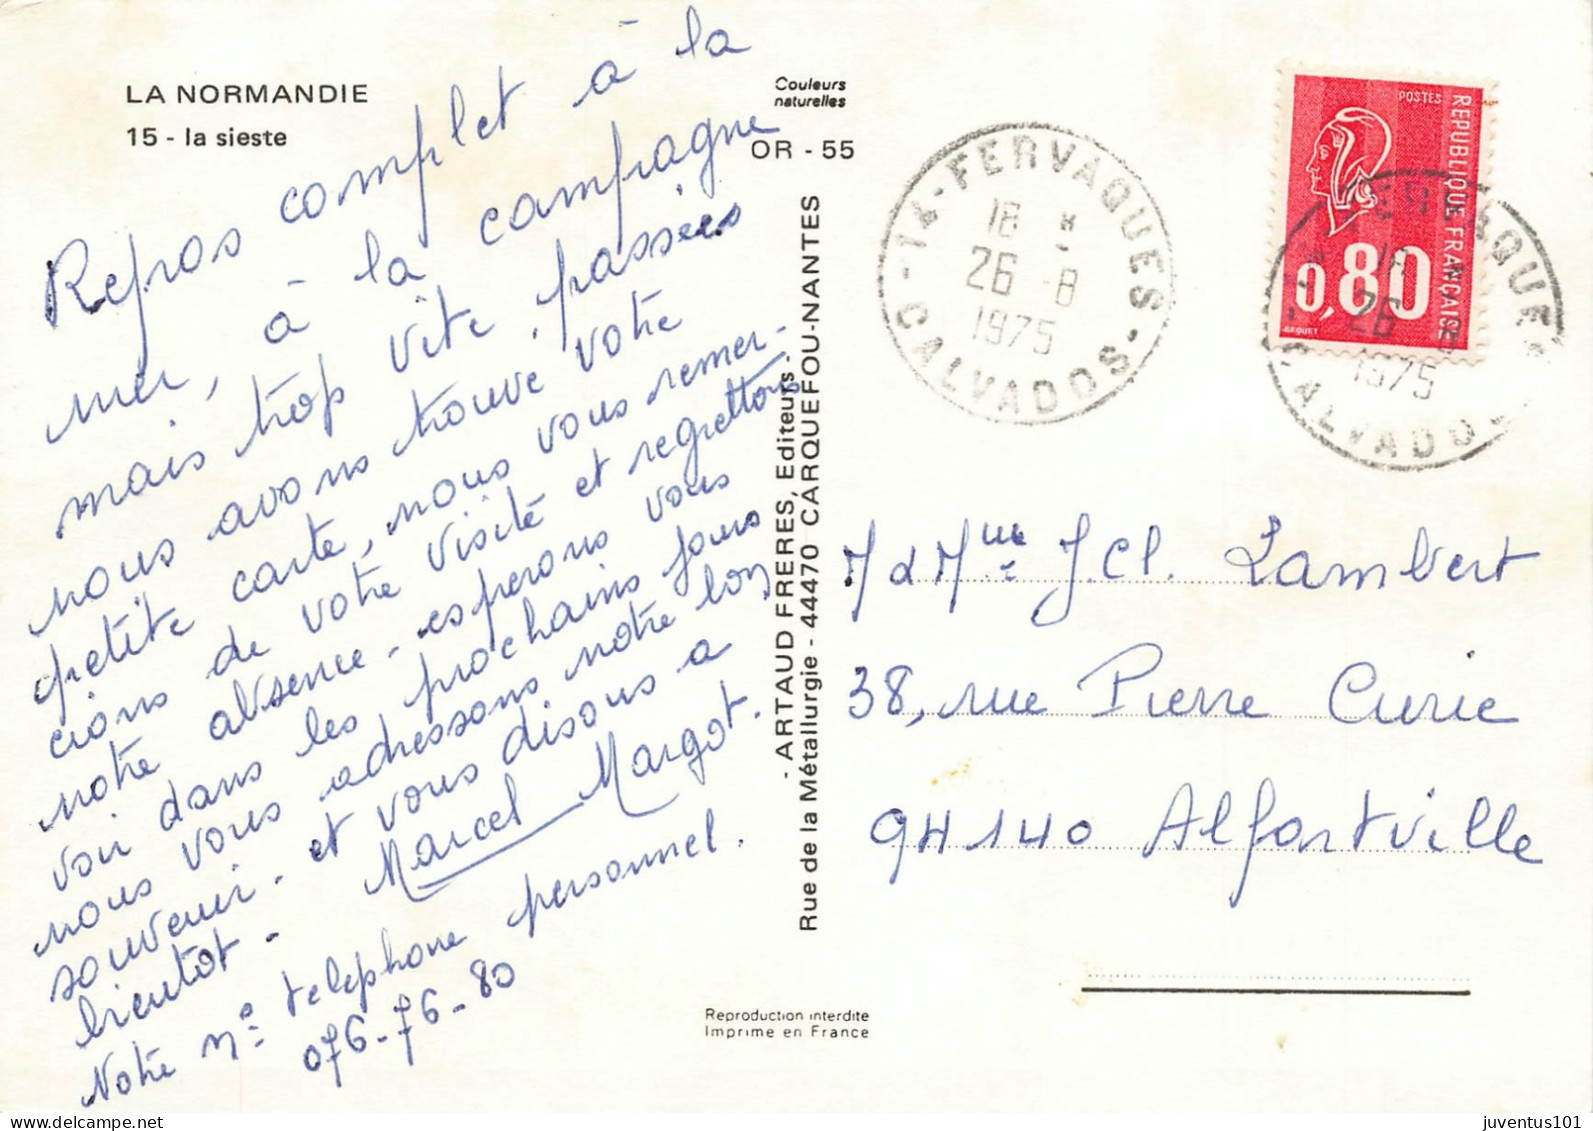 LA NORMANDIE
15 - la sieste
Couleurs
naturelles
OR - 55
Repos complet à la
mer, à la campagne
mais trop vite passées
nous avons trouvé votre
petite carte, nous vous remer-
cions de votre visite et regrettons
notre absence. esperons vous
voir dans les prochains jours
nous vous adressons notre bon
souvenir. et vous disons a
bientot - Marcel Margot.
Notre n° telephone personnel.
076-76-80
- ARTAUD FRERES, Editeurs -
Rue de la Métallurgie - 44470 CARQUEFOU-NANTES
Reproduction interdite
Imprimé en France
14-FERVAQUES
18 H
26 -8
1975
CALVADOS
POSTES
REPUBLIQUE FRANÇAISE
0,80
BEQUET
18 H
26 -8
1975
CALVADOS
M & Mme J.Cl. Lambert
38, rue Pierre Curie
94140 Alfortville
juventus101